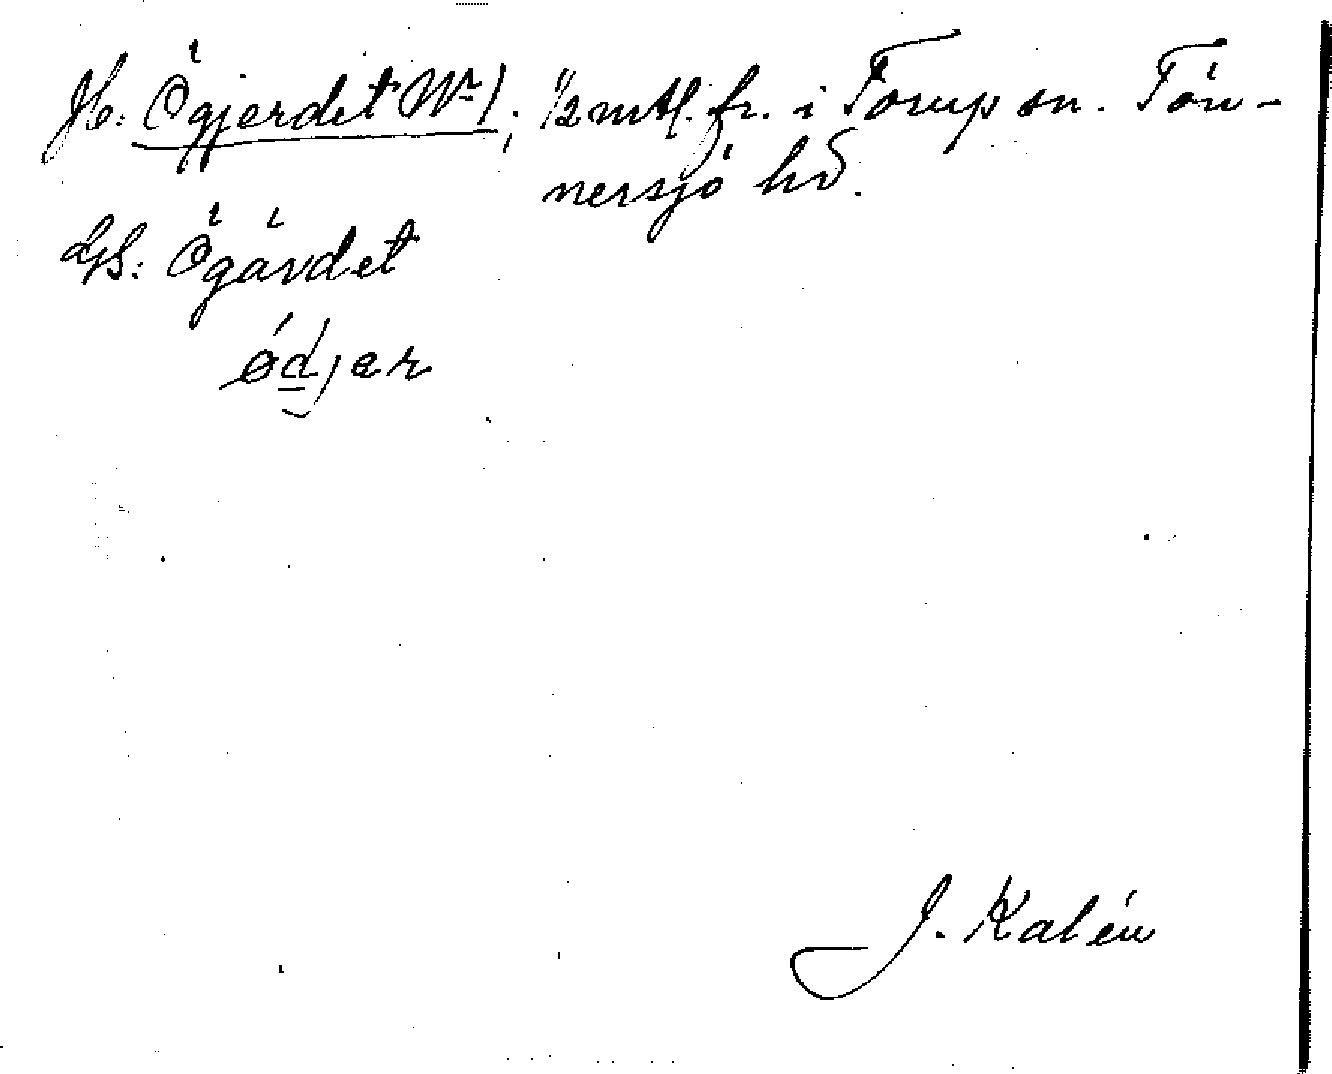 Jb: Ögjerdet Nr 1; 1/2 mtl. fr. i Torup sn. Tön-
nersjö hd.
GS: Ögärdet
ǿdjar
J. Kalén